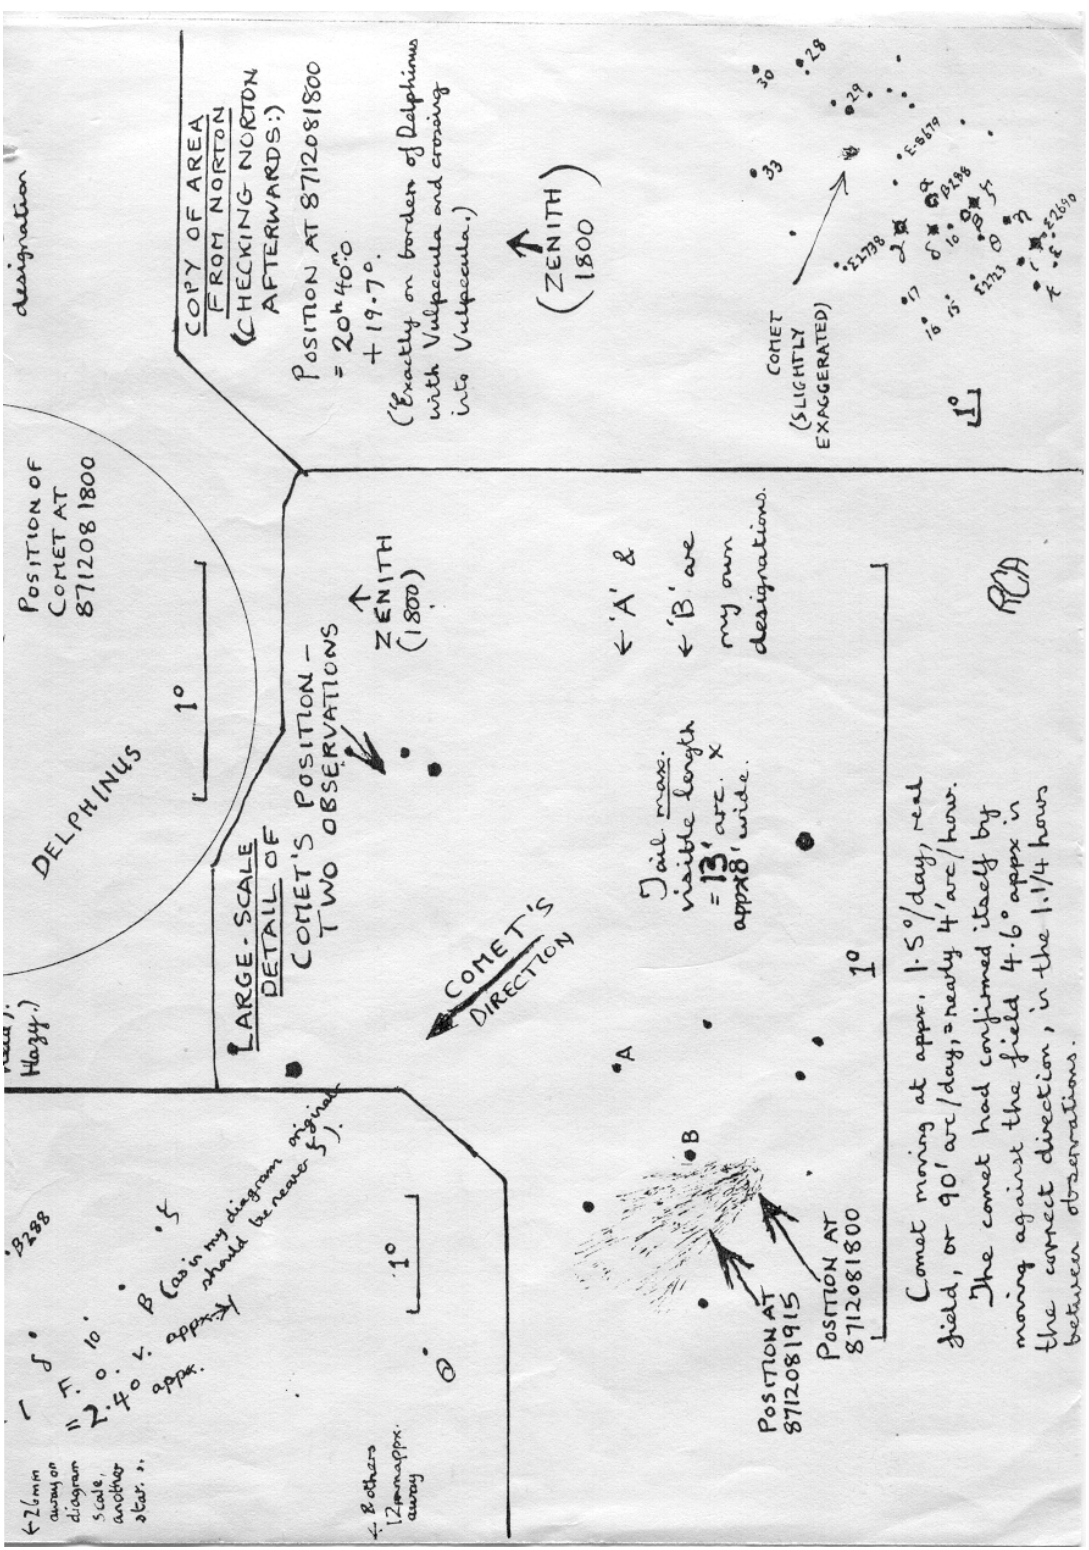 designation
COPY OF AREA
FROM NORTON
(CHECKING NORTON
AFTERWARDS:)
POSITION AT 8712081800
= 20h 40m.0
+ 19.7°.
(Exactly on borders of Delphinus
with Vulpecula and crossing
into Vulpecula.)
(ZENITH
1800)
COMET
(SLIGHTLY
EXAGGERATED)
1°
30
28
29
33
Σ2738
17
16
15
α
δ
10
β288
β
ζ
θ
η
Σ2723
Σ2690
ε
POSITION OF
COMET AT
8712081800
1°
DELPHINUS
Hazy.)
LARGE-SCALE
DETAIL OF
COMET'S POSITION –
TWO OBSERVATIONS
ZENITH
(1800)
COMET'S
DIRECTION
← 'A' &
← 'B' are
my own
designations.
Tail max.
visible length
= 13' arc. x
appx 8' wide.
A
B
POSITION AT
8712081915
POSITION AT
8712081800
1°
Comet moving at appx. 1.5°/day, real
field, or 90' arc/day, = nearly 4' arc/hour.
The comet had confirmed itself by
moving against the field 4.6° appx in
the correct direction, in the 1.1/4 hours
between observations.
RCA
β288
δ
10
ζ
β (as in my diagram original
should be nearer ζ).
F. O. V. appx.
= 2.40 appx.
← 26mm
away on
diagram
scale,
another
star.
← 8 others
12mm appx.
away
θ
1°